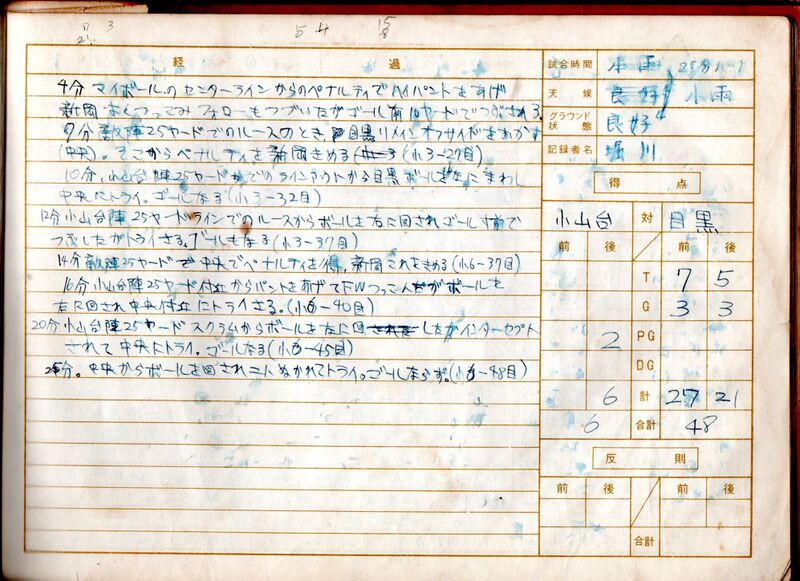 経 過
4分 マイボールのセンターラインからのペナルティでハイパントをあげ
新岡 よくつっこみフォローもつづいたがゴール前10ヤードでつぶされる。
7分 敵陣25ヤードでのルースのとき、目黒リメインオフサイドをおかす
(中央)。そこからペナルティを新岡きめる (小3-27目)
10分、小山台陣25ヤードでのラインアウトから目黒ボールを左にまわし
中央にトライ。ゴールなる (小3-32目)
12分 小山台陣25ヤードラインでのルースからボールを右に回されゴール寸前で
つぶしたがトライさる。ゴールもなる (小3-37目)
14分 敵陣25ヤードで中央でペナルティを得、新岡これをきめる (小6-37目)
16分 小山台陣25ヤード付近からパントを あげてFWつっこんだがボールを
右に回され中央付近にトライさる。(小6-40目)
20分 小山台陣25ヤード スクラムからボールを左に回したがインターセプト
されて中央にトライ。ゴールなる (小6-45目)
25分。中央からボールを回され二人ぬかれてトライ。ゴールならず。(小6-48目)
試合時間
天候 良好 小雨
グラウンド状態 良好
記録者名 堀川
得点
小山台 対 目黒
前 後 前 後
T 7 5
G 3 3
2 PG
DG
6 計 27 21
6 合計 48
反則
前 後 前 後
合計